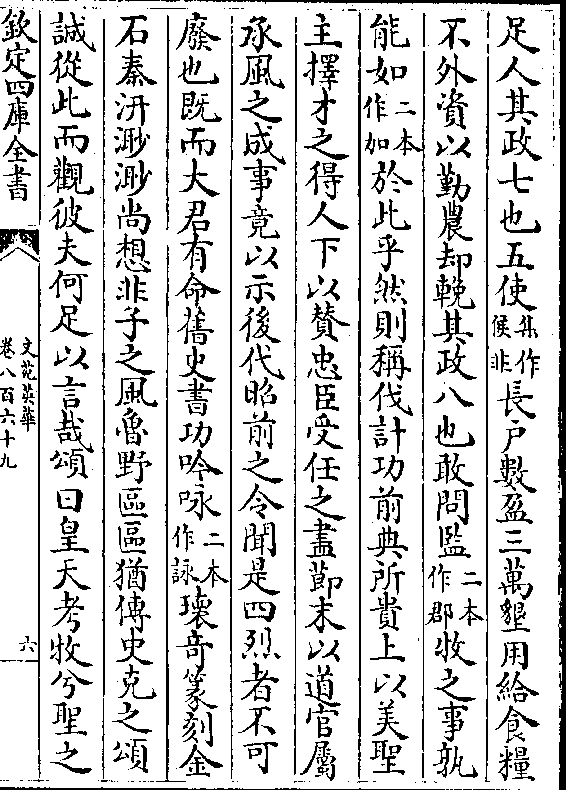 足人其政七也五使集作候非長户數盈三萬墾用給食糧
不外資以勤農却輓其政八也敢問監二本作郡牧之事孰
能如二本作加於此乎然則稱伐計功前典所貴上以美聖
主擇才之得人下以贊忠臣受任之盡節末以道官屬
承風之成事竟以示後代昭前之令聞是四烈者不可
廢也既而大君有命舊史書功吟咏二本作詠瓌竒篆刻金
石秦汧渺渺尚想非子之風魯野區區猶傳史克之頌
誠從此而觀彼夫何足以言哉頌曰皇天考牧兮聖之
欽定四庫全書
文苑英華
卷八百六十九
六